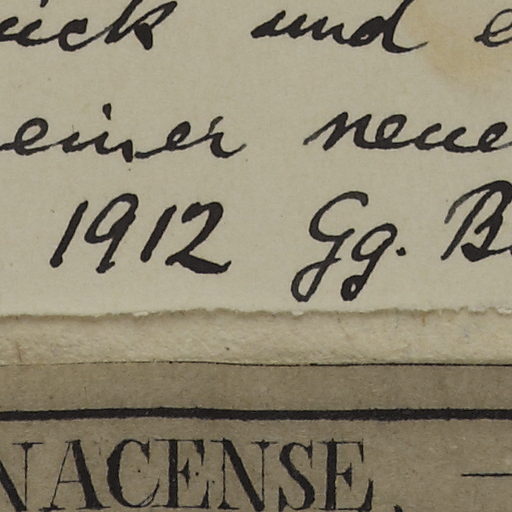 ück und
einer neue
1912 Gg. B
NACENSE.